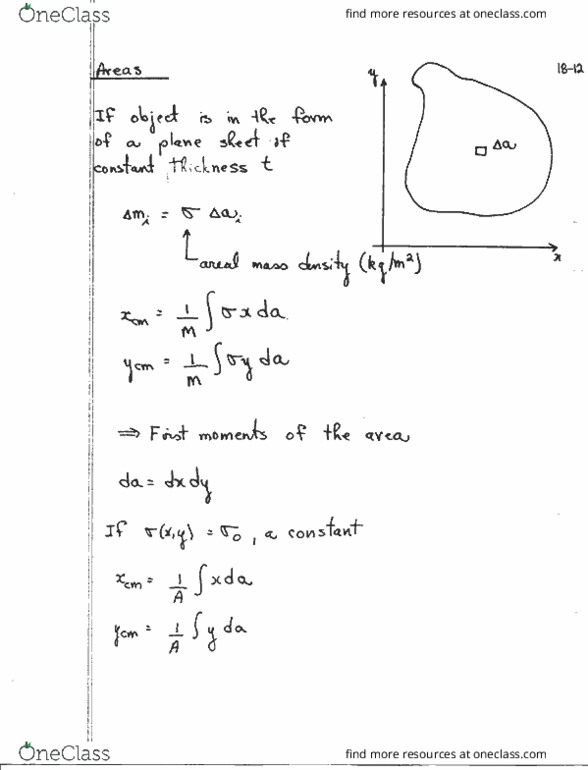 OneClass
find more resources at oneclass.com
18-12
Areas
y
If object is in the form
of a plane sheet of
constant thickness t
Δa
Δmᵢ = σ Δaᵢ
x
areal mass density (kg/m²)
x_cm = 1/M ∫ σ x da
y_cm = 1/M ∫ σ y da
⇒ First moments of the area
da = dx dy
If σ(x,y) = σ₀, a constant
x_cm = 1/A ∫ x da
y_cm = 1/A ∫ y da
OneClass
find more resources at oneclass.com